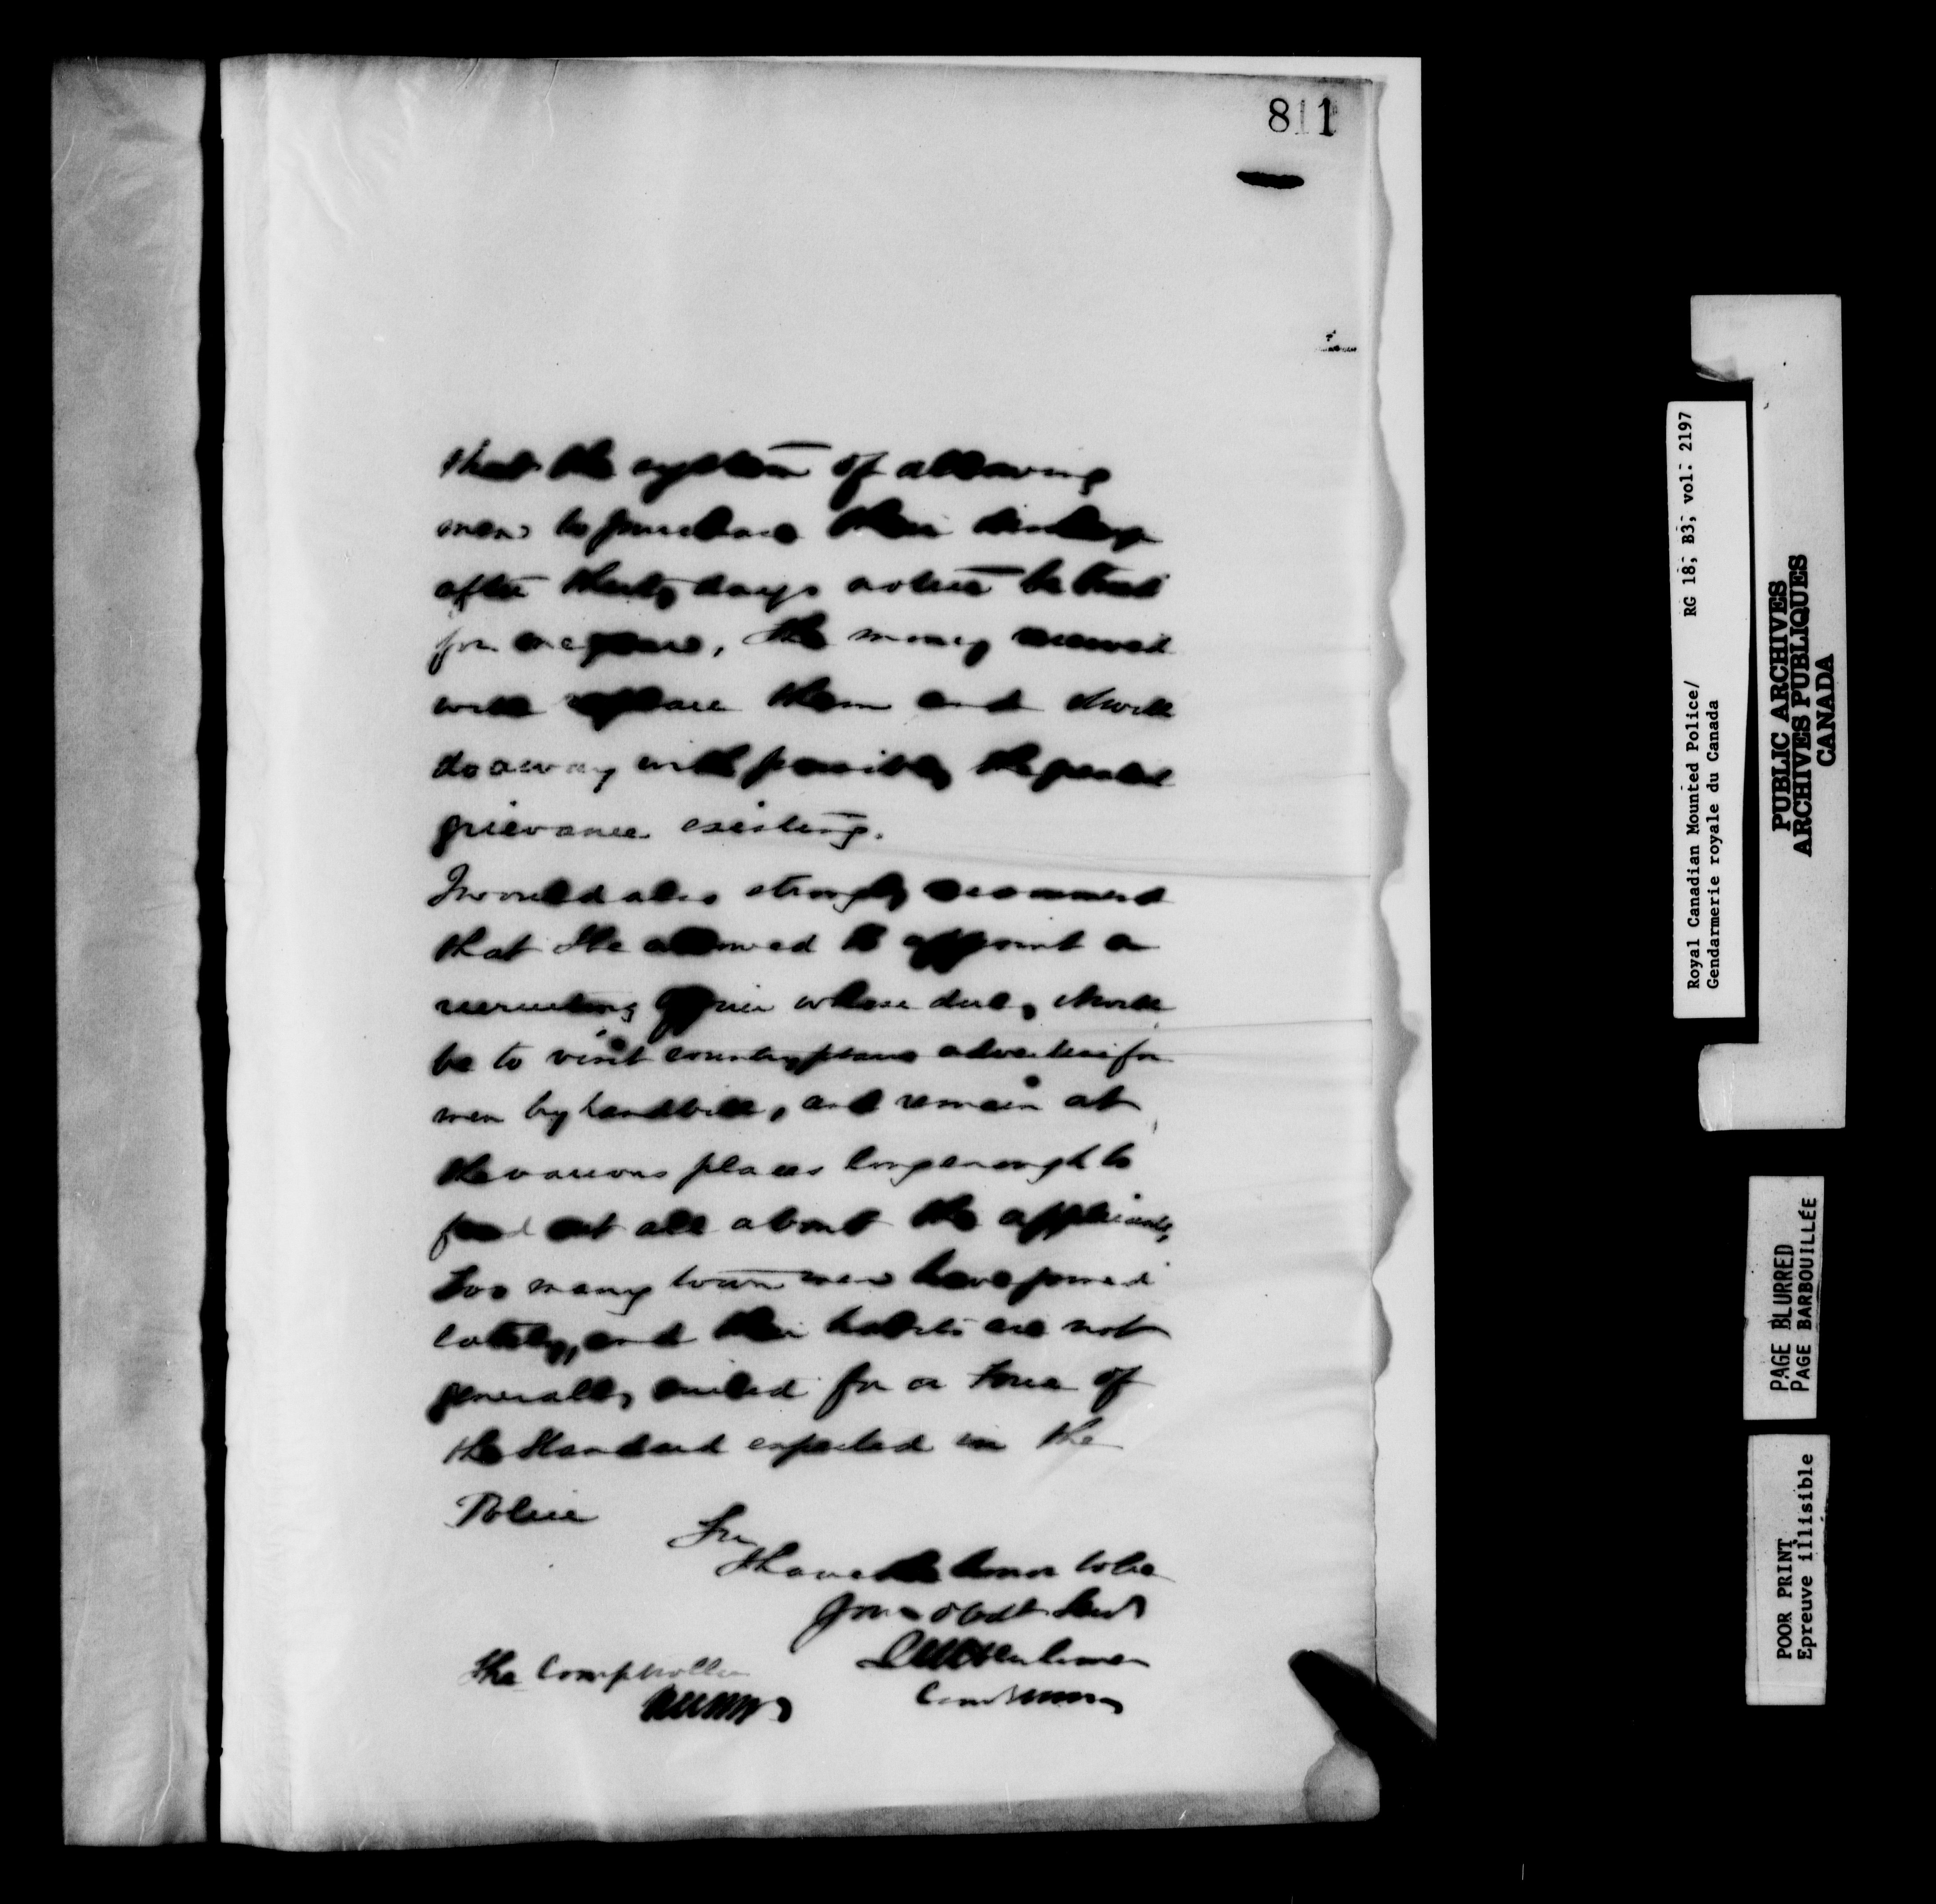 811
that the system of allowing
men to purchase their discharge
after thirty days notice be tried
for one year, the money received
will replace them and it will
do away with possibly the greatest
grievance existing.
I would also strongly recommend
that I be allowed to appoint a
recruiting officer whose duty it will
be to visit country places advertise for
men by handbills, and remain at
the various places long enough to
find out all about the applicants,
too many town men have joined
lately, and their habits are not
generally suited for a force of
the standard expected in the
Police
Sir
I have the honor to be
Your obdt Servt
The Comptroller
Royal Canadian Mounted Police/ RG 18; B3; vol: 2197
Gendarmerie royale du Canada
PUBLIC ARCHIVES
ARCHIVES PUBLIQUES
CANADA
PAGE BLURRED
PAGE BARBOUILLÉE
POOR PRINT
Epreuve illisible